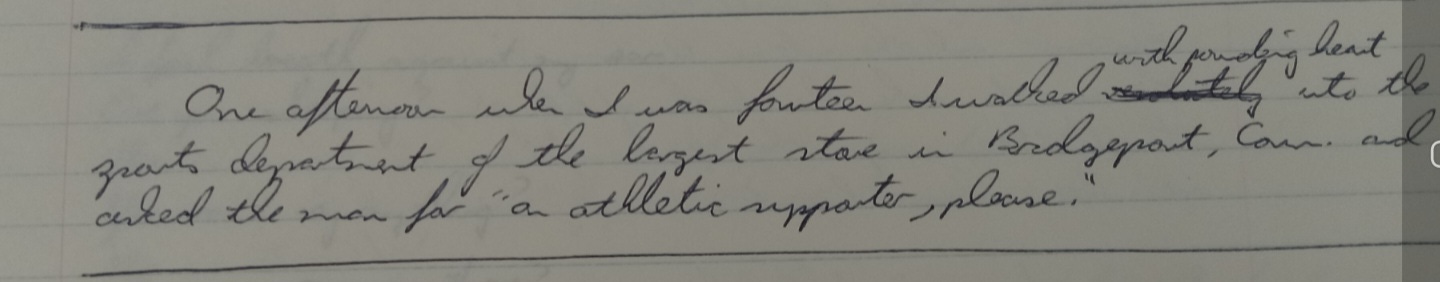 with pounding heart
One afternoon when I was fourteen I walked resolutely into the
sports department of the largest store in Bridgeport, Conn. and
asked the man for "an athletic supporter, please."